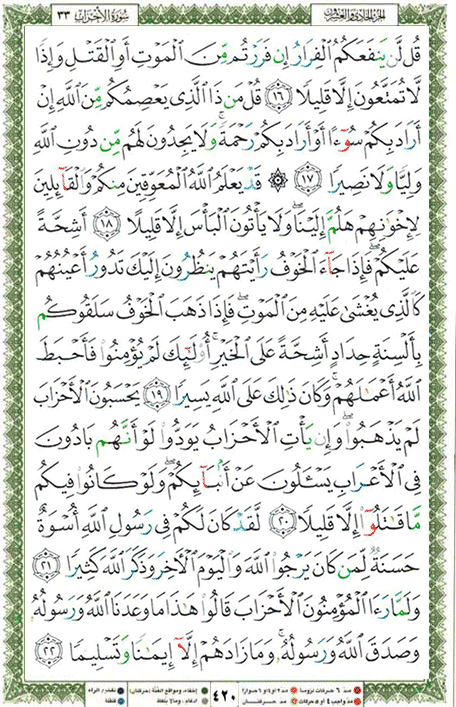 سورة الأحزاب ٣٣
الجزء الحادي والعشرون
قُل لَّن يَنفَعَكُمُ ٱلْفِرَارُ إِن فَرَرْتُم مِّنَ ٱلْمَوْتِ أَوِ ٱلْقَتْلِ وَإِذًا
لَّا تُمَتَّعُونَ إِلَّا قَلِيلًا ١٦ قُلْ مَن ذَا ٱلَّذِى يَعْصِمُكُم مِّنَ ٱللَّهِ إِنْ
أَرَادَ بِكُمْ سُوٓءًا أَوْ أَرَادَ بِكُمْ رَحْمَةً ۚ وَلَا يَجِدُونَ لَهُم مِّن دُونِ ٱللَّهِ
وَلِيًّا وَلَا نَصِيرًا ١٧ ۞ قَدْ يَعْلَمُ ٱللَّهُ ٱلْمُعَوِّقِينَ مِنكُمْ وَٱلْقَآئِلِينَ
لِإِخْوَٰنِهِمْ هَلُمَّ إِلَيْنَا ۖ وَلَا يَأْتُونَ ٱلْبَأْسَ إِلَّا قَلِيلًا ١٨ أَشِحَّةً
عَلَيْكُمْ ۖ فَإِذَا جَآءَ ٱلْخَوْفُ رَأَيْتَهُمْ يَنظُرُونَ إِلَيْكَ تَدُورُ أَعْيُنُهُمْ
كَٱلَّذِى يُغْشَىٰ عَلَيْهِ مِنَ ٱلْمَوْتِ ۖ فَإِذَا ذَهَبَ ٱلْخَوْفُ سَلَقُوكُم
بِأَلْسِنَةٍ حِدَادٍ أَشِحَّةً عَلَى ٱلْخَيْرِ ۚ أُو۟لَٰٓئِكَ لَمْ يُؤْمِنُوا۟ فَأَحْبَطَ
ٱللَّهُ أَعْمَٰلَهُمْ ۚ وَكَانَ ذَٰلِكَ عَلَى ٱللَّهِ يَسِيرًا ١٩ يَحْسَبُونَ ٱلْأَحْزَابَ
لَمْ يَذْهَبُوا۟ ۖ وَإِن يَأْتِ ٱلْأَحْزَابُ يَوَدُّوا۟ لَوْ أَنَّهُم بَادُونَ
فِى ٱلْأَعْرَابِ يَسْـَٔلُونَ عَنْ أَنۢبَآئِكُمْ ۖ وَلَوْ كَانُوا۟ فِيكُم
مَّا قَٰتَلُوٓا۟ إِلَّا قَلِيلًا ٢٠ لَّقَدْ كَانَ لَكُمْ فِى رَسُولِ ٱللَّهِ أُسْوَةٌ
حَسَنَةٌ لِّمَن كَانَ يَرْجُوا۟ ٱللَّهَ وَٱلْيَوْمَ ٱلْءَاخِرَ وَذَكَرَ ٱللَّهَ كَثِيرًا ٢١
وَلَمَّا رَءَا ٱلْمُؤْمِنُونَ ٱلْأَحْزَابَ قَالُوا۟ هَٰذَا مَا وَعَدَنَا ٱللَّهُ وَرَسُولُهُۥ
وَصَدَقَ ٱللَّهُ وَرَسُولُهُۥ ۚ وَمَا زَادَهُمْ إِلَّآ إِيمَٰنًا وَتَسْلِيمًا ٢٢
٤٢٠
مد ٦ حركات لزوماً
مد ٢ أو ٤ أو ٦ جوازاً
مد واجب ٤ أو ٥ حركات
مد حركتان
إخفاء، ومواقع الغنة (حركتان)
إدغام، وما لا يلفظ
تفخيم الراء
قلقلة